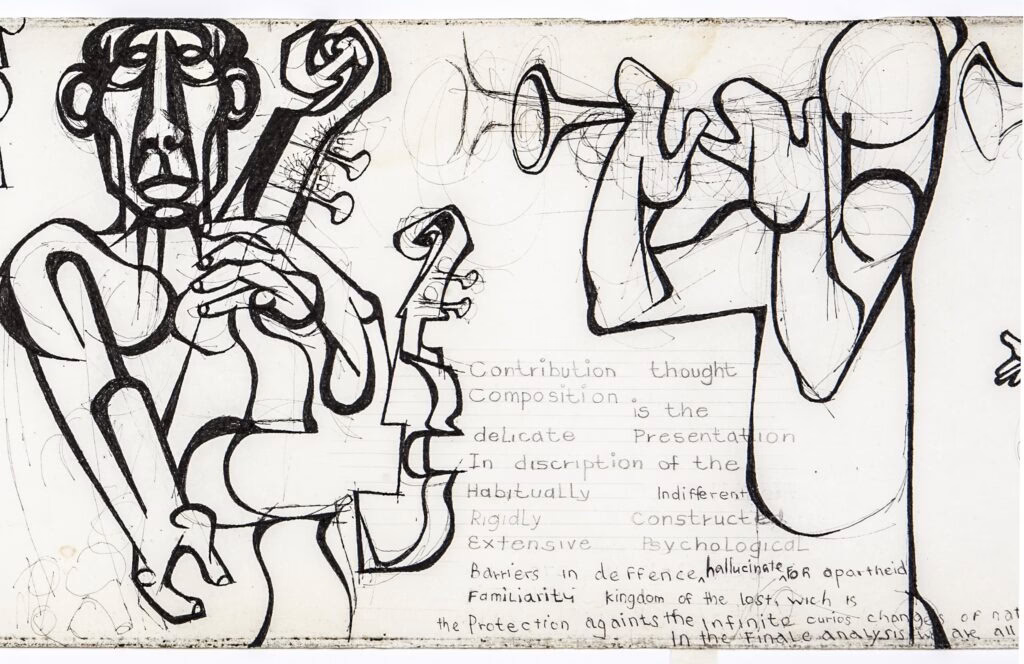 Contribution thought
Composition is the
delicate Presentation
In discription of the
Habitually Indifferent
Rigidly Constructed
Extensive Psychological
Barriers in deffence, hallucinate for apartheid
Familiarity kingdom of the lost, wich is
the Protection againts the Infinite curios changes of nat
In the Finale analysis we are all